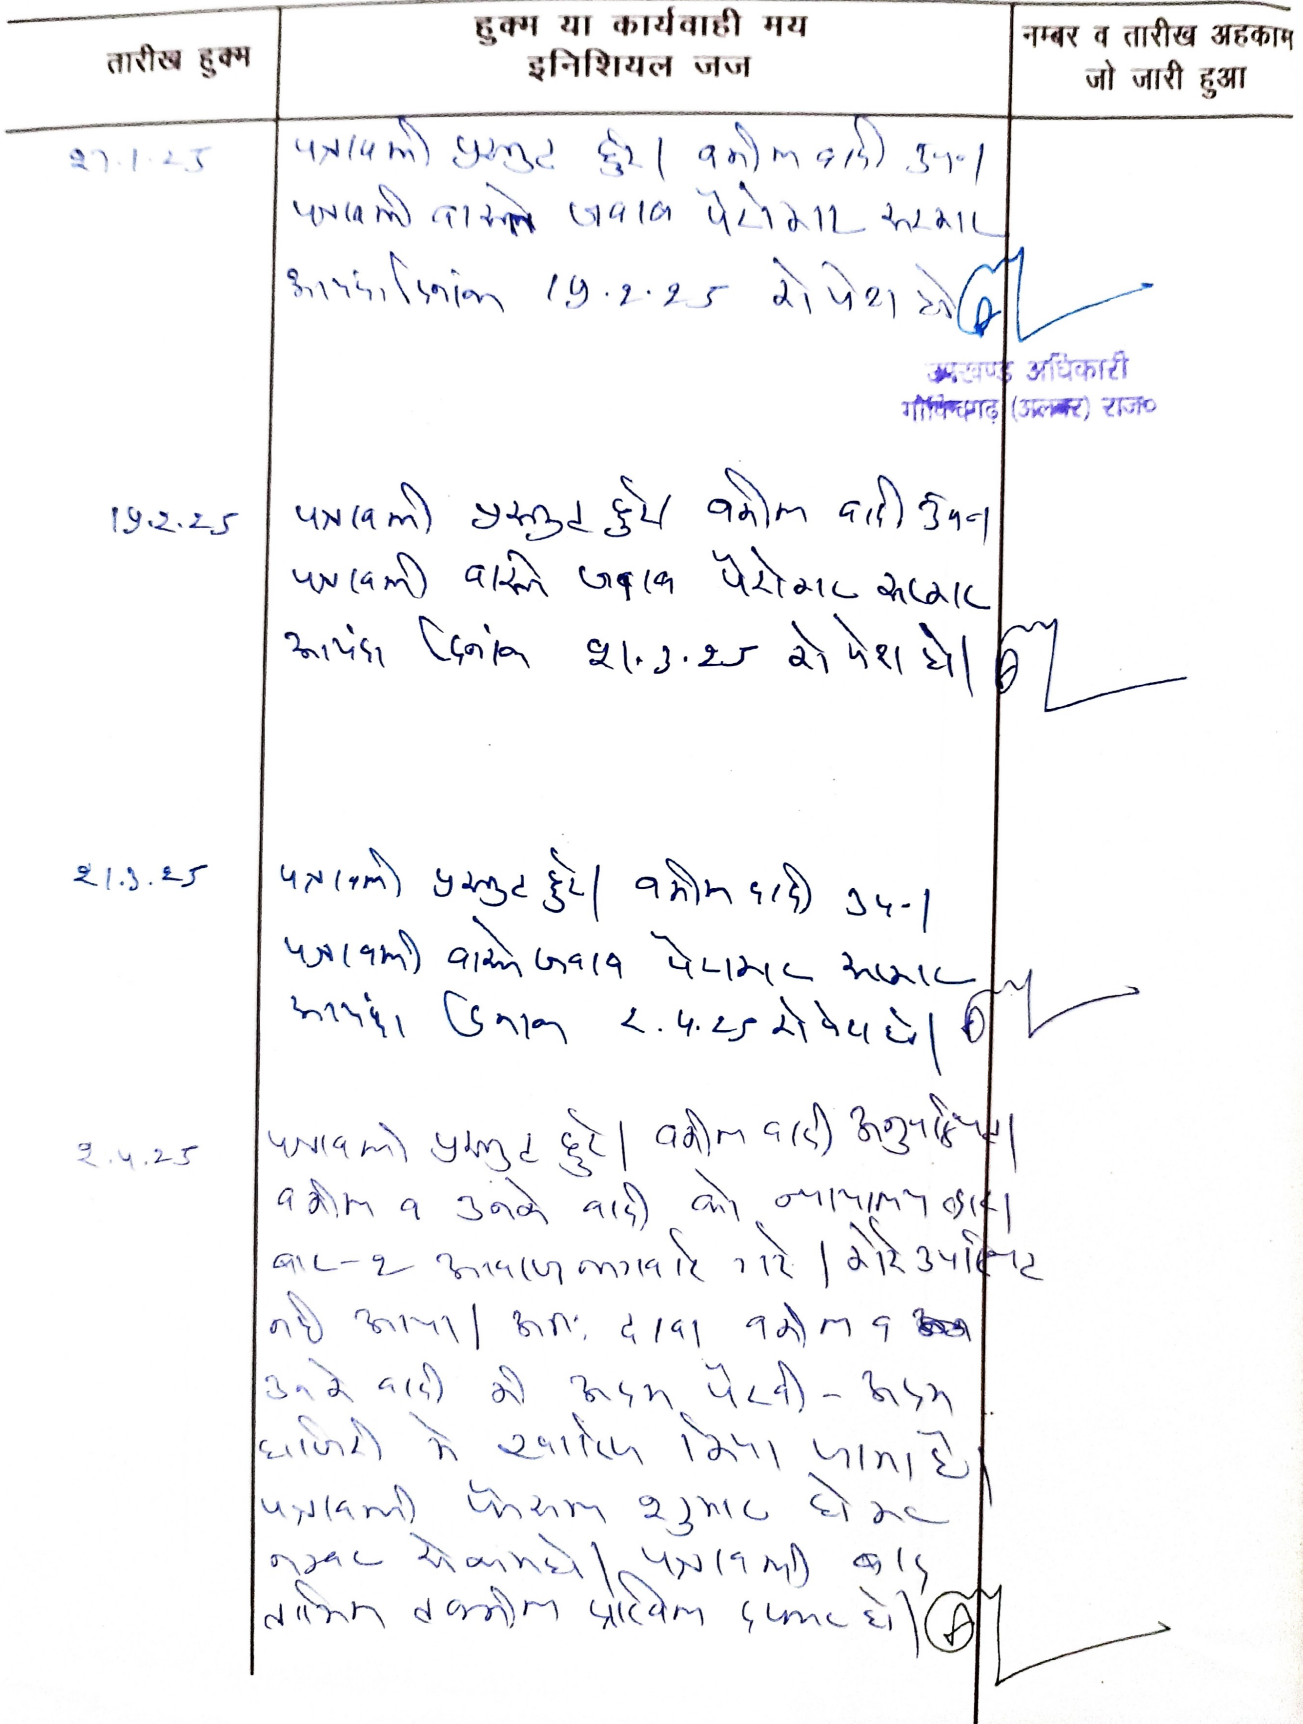 तारीख हुक्म
हुक्म या कार्यवाही मय
इनिशियल जज
नम्बर व तारीख अहकाम
जो जारी हुआ
27.1.25
पत्रावली प्रस्तुत हुई। वकील वादी उप.।
पत्रावली वास्ते जवाब पैरोकार सरकार
आयंदा दिनांक 19.2.25 को पेश हो
उपखण्ड अधिकारी
गोविन्दगढ़ (अलवर) राज०
19.2.25
पत्रावली प्रस्तुत हुई। वकील वादी उप.।
पत्रावली वास्ते जवाब पैरोकार सरकार
आयंदा दिनांक 21.3.25 को पेश हो।
21.3.25
पत्रावली प्रस्तुत हुई। वकील वादी उप.।
पत्रावली वास्ते जवाब पैरोकार सरकार
आयंदा दिनांक 2.4.25 को पेश हो।
2.4.25
पत्रावली प्रस्तुत हुई। वकील वादी अनुपस्थित।
वकील व उनके वादी को न्यायालय द्वारा
बार-2 आवाज लगवाई गई। कोई उपस्थित
नही आया। अतः दावा वकील व
उनके वादी की अदम पैरवी - अदम
हाजिरी मे खारिज किया जाता है।
पत्रावली फैसल शुमार होकर
नम्बर से कम हो। पत्रावली बाद
तकमील दाखिल दफ्तर हो।